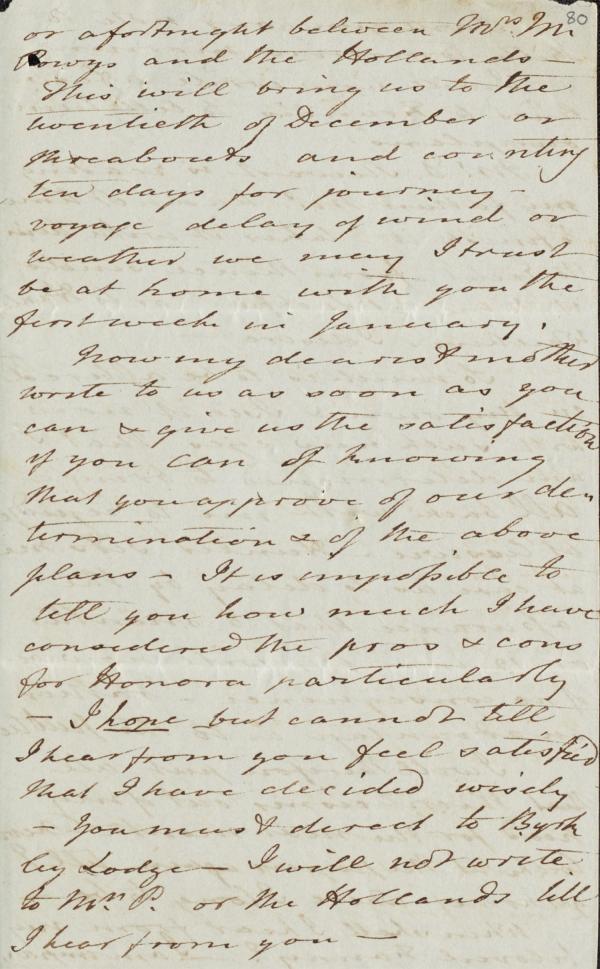 80
or a fortnight between Mrs. M
Powys and the Hollands –
This will bring us to the
twentieth of December or
thereabouts and counting
ten days for journey –
voyage delay of wind or
weather we may I trust
be at home with you the
first week in January.
Now my dearest mother
write to us as soon as you
can & give us the satisfaction
if you can of knowing
that you approve of our de
termination & of the above
plans – It is impossible to
tell you how much I have
considered the pros & cons
for Honora particularly
– I hope but cannot till
I hear from you feel satisfied
that I have decided wisely
– You must direct to Byrk
ley Lodge – I will not write
to Mrs. P. or the Hollands till
I hear from you –